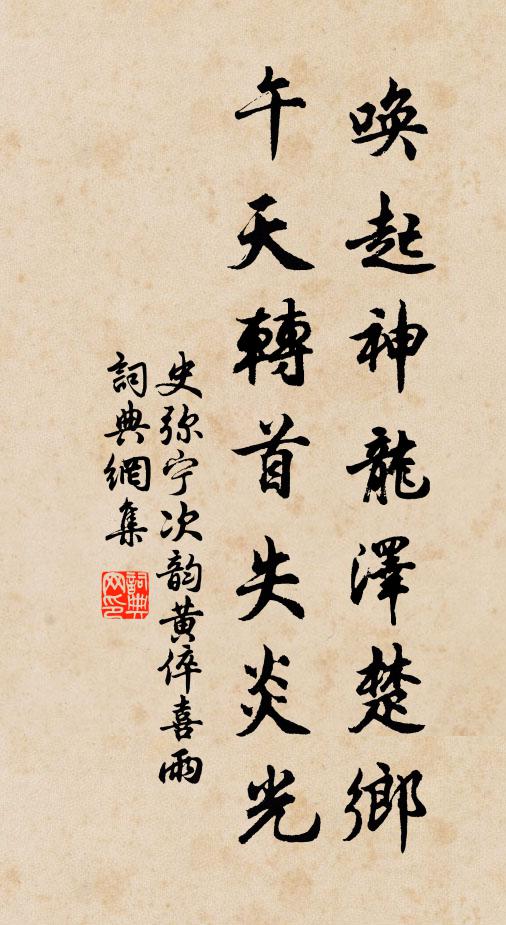 喚起神龍澤楚鄉
午天轉首失炎光
史弥宁次韵黄倅喜雨
詞典網集
詞典网印